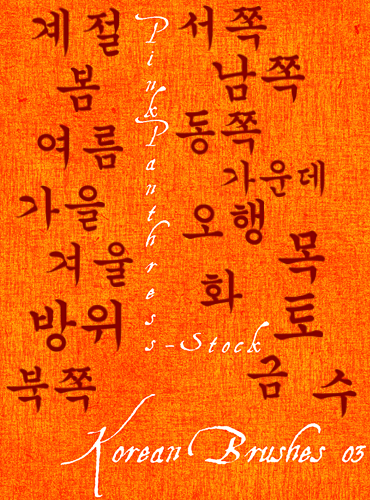 계절
봄
여름
가을
겨울
방위
북쪽
PinkPanthress-Stock
서쪽
남쪽
동쪽
가운데
오행
목
화
토
금
수
Korean Brushes 03